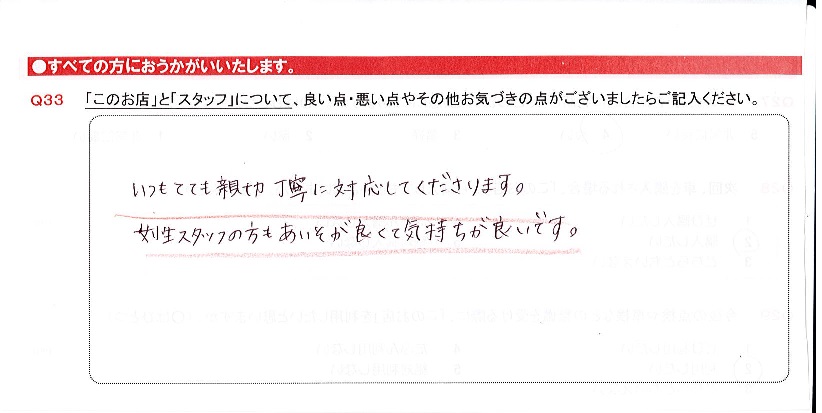 ●すべての方におうかがいいたします。
Q33 「このお店」と「スタッフ」について、良い点・悪い点やその他お気づきの点がございましたらご記入ください。
いつもとても親切丁寧に対応してくださります。
女性スタッフの方もあいそが良くて気持ちが良いです。